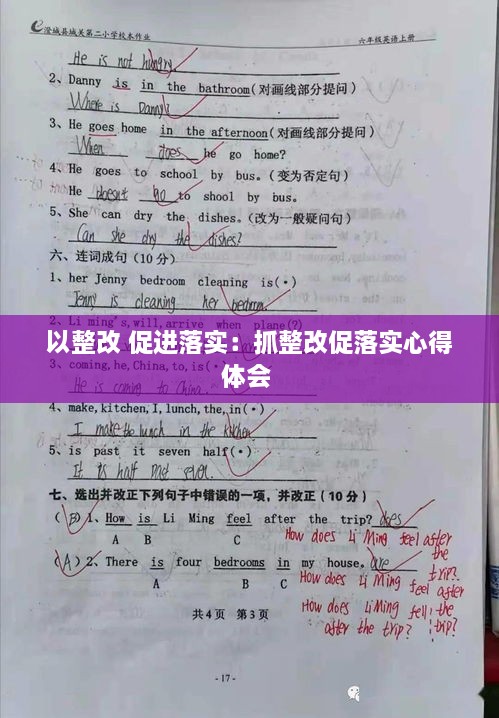 澄城县城关第二小学校本作业 六年级英语上册
He is not hungry.
2、Danny is in the bathroom(对画线部分提问)
Where is Danny?
3、He goes home in the afternoon(对画线部分提问)
When does he go home?
4、He goes to school by bus.(变为否定句)
He doesn't go to shool by bus.
5、She can dry the dishes.(改为一般疑问句)
Can she dry the dishes?
六、连词成句(10分)
1、her Jenny bedroom cleaning is(.)
Jenny is cleaning her bedroom.
2、Li ming's,will,arrive when plane(?)
以整改 促进落实：抓整改促落实心得
体会
3、coming,he,China,to,is(.)
He is coming to China.
4、make,kitchen,I,lunch,the,in(.)
I make the lunch in the kitchen
5、is past it seven half(.)
It is half past seven.
七、选出并改正下列句子中错误的一项,并改正(10分)
(B)1、How is Li Ming feel after the trip? does
A B C
How does Li Ming feel after the trip?
(A)2、There is four bedrooms in my house. are
A B C
How does Li Ming feel after the trip?
How does Li Ming fell after the trip?
共4页 第3页
-17-